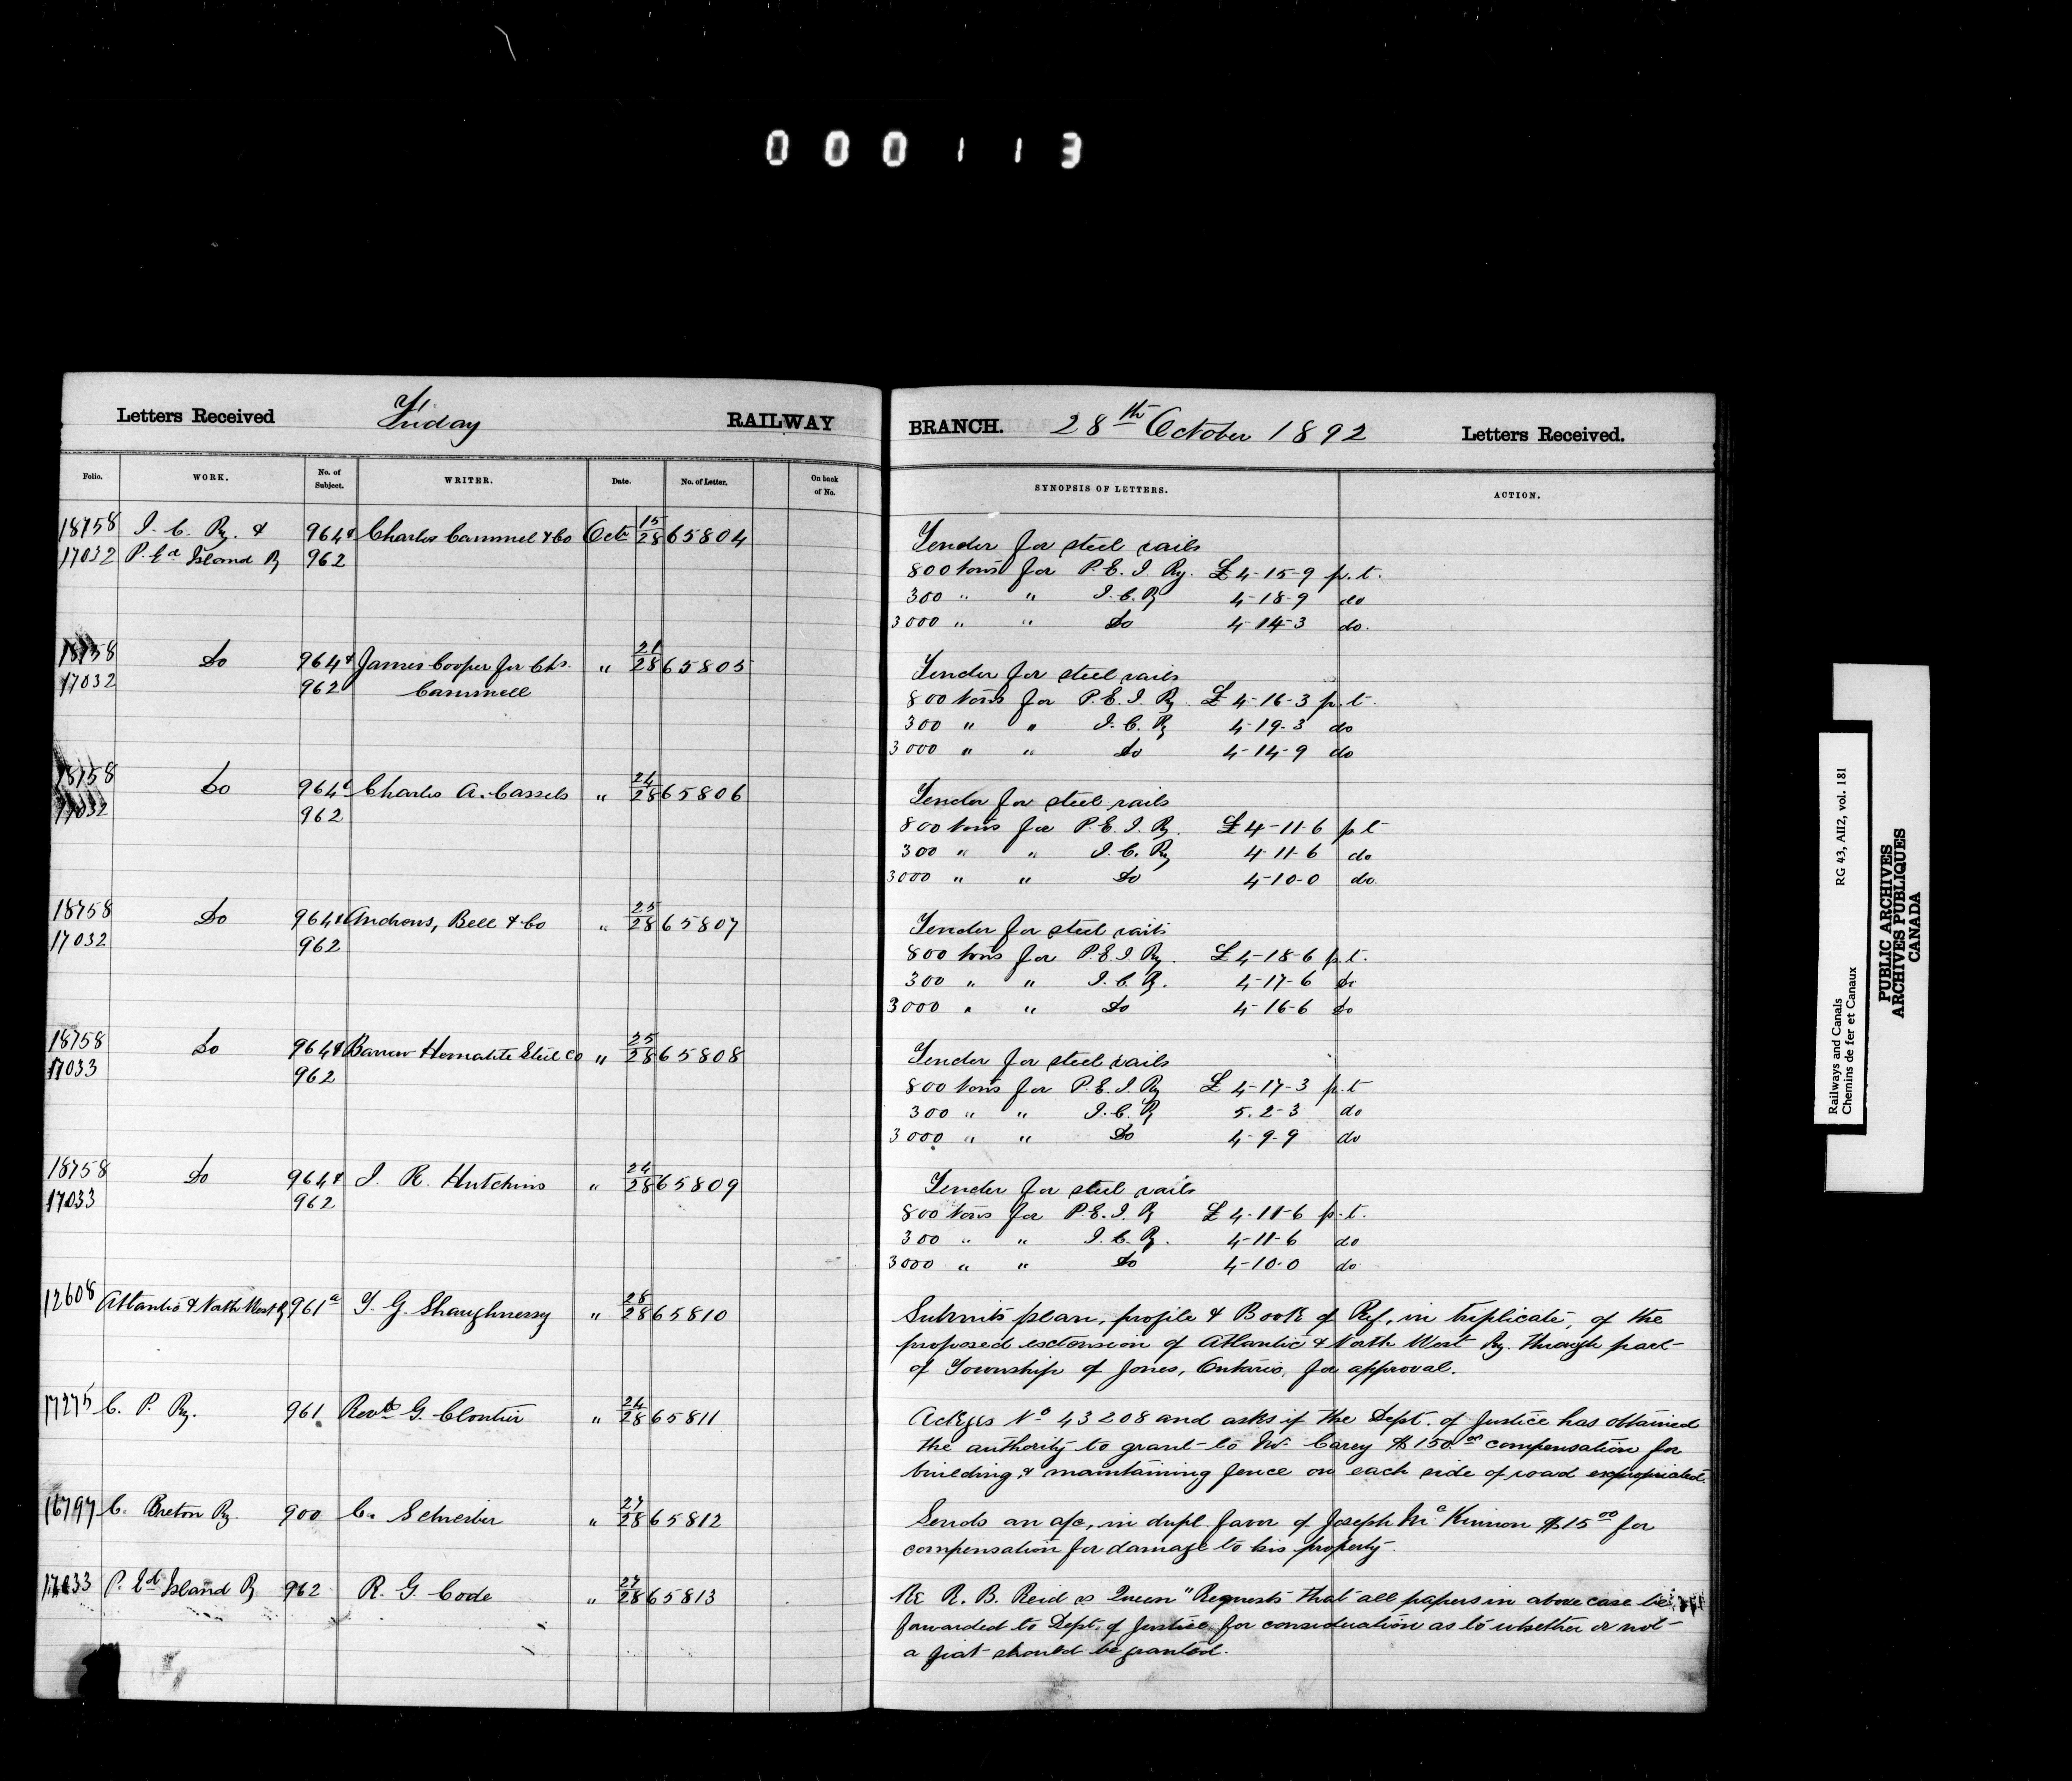 000113
Letters Received Friday RAILWAY BRANCH. 28th October 1892 Letters Received.
Folio. WORK. No. of Subject. WRITER. Date. No. of Letter. On back of No. SYNOPSIS OF LETTERS. ACTION.
18758 I. C. Ry. & 964 & Charles Cammel & Co Octr 15/28 65804 Tender for steel rails
17032 P. Ed Island Ry 962 800 tons for P. E. I. Ry. £ 4-15-9 p. t.
300 " " I. C. Ry 4-18-9 do
3000 " " Do 4-14-3 do.
18758 Do 964 & James Cooper for Chs. " 21/28 65805 Tender for steel rails
17032 962 Cammell 800 tons for P. E. I. Ry £ 4-16-3 p. t.
300 " " I. C. Ry 4-19-3 do
3000 " " Do 4-14-9 do
18758 Do 964 & Charles A. Cassels " 24/28 65806 Tender for steel rails
17032 962 800 tons for P. E. I. Ry. £ 4-11-6 p. t
300 " " I. C. Ry 4-11-6 do
3000 " " Do 4-10-0 do.
18758 Do 964 & Andrews, Bell & Co " 25/28 65807 Tender for steel rails
17032 962 800 tons for P. E. I. Ry. £ 4-18-6 p. t.
300 " " I. C. Ry. 4-17-6 do
3000 " " Do 4-16-6 do
18758 Do 964 & Barrow Hematite Steel Co " 25/28 65808 Tender for steel rails
17033 962 800 tons for P. E. I. Ry £ 4-17-3 p. t
300 " " I. C. Ry 5.2-3 do
3000 " " Do 4-9-9 do
18758 Do 964 & J. R. Hutchins " 24/28 65809 Tender for steel rails
17033 962 800 tons for P. E. I. Ry £ 4-11-6 p. t.
300 " " I. C. Ry. 4-11-6 do
3000 " " Do 4-10-0 do
12608 Atlantic & North West Ry 961a T. G. Shaughnessy " 28/28 65810 Submits plan, profile & Book of Ref., in triplicate, of the
proposed extension of Atlantic & North West Ry. through part
of Township of Jones, Ontario, for approval.
17275 C. P. Ry. 961 Revd G. Cloutier " 24/28 65811 Ackges No 43208 and asks if the Dept. of Justice has obtained
the authority to grant to Mr. Carey $150.00 compensation for
building & maintaining fence on each side of road expropriated.
16797 C. Breton Ry. 900 C. Schreiber " 27/28 65812 Sends an a/c, in dupl. favor of Joseph McKinnon $15 00 for
compensation for damage to his property.
17033 P. Ed Island Ry 962 R. G. Code " 27/28 65813 Re R. B. Reid vs Queen" Requests that all papers in above case be
forwarded to Dept. of Justice for consideration as to whether or not
a fiat should be granted.
Railways and Canals RG 43, AII2, vol. 181
Chemins de fer et Canaux
PUBLIC ARCHIVES
ARCHIVES PUBLIQUES
CANADA